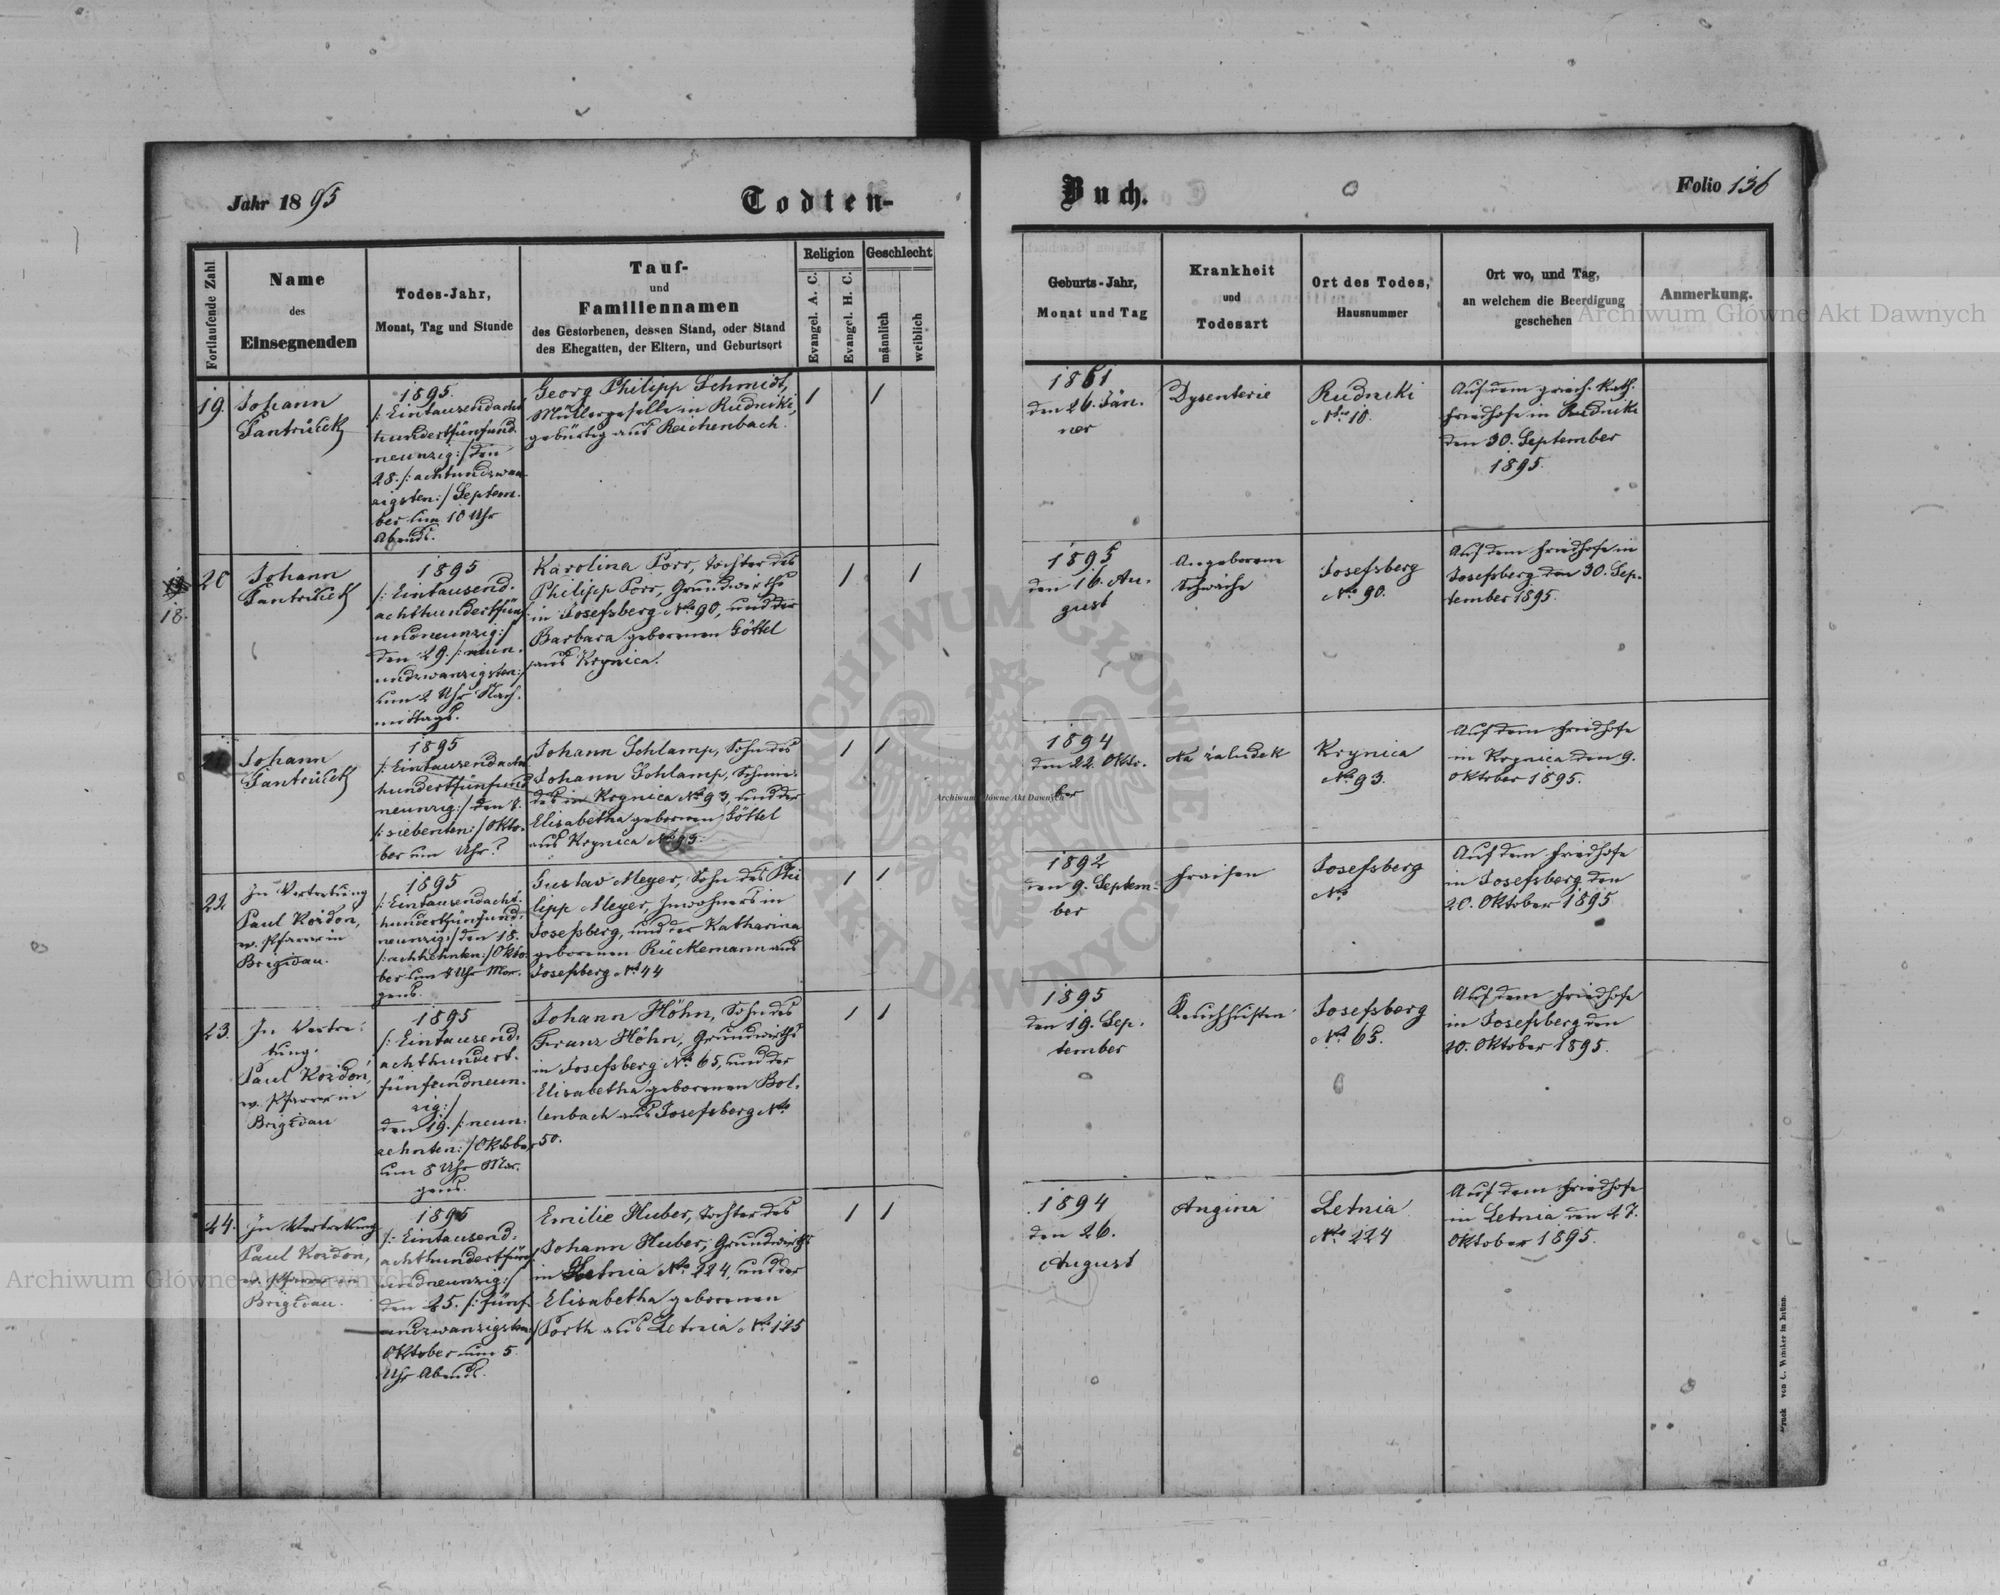 Jahr 1895
Todten-
Buch.
Folio 136
Fortlaufende Zahl
Name
des
Einsegnenden
Todes-Jahr,
Monat, Tag und Stunde
Tauf-
und
Familiennamen
des Gestorbenen, dessen Stand, oder Stand
des Ehegatten, der Eltern, und Geburtsort
Religion
Evangel. A. C.
Evangel. H. C.
Geschlecht
männlich
weiblich
Geburts-Jahr,
Monat und Tag
Krankheit
und
Todesart
Ort des Todes,
Hausnummer
Ort wo, und Tag,
an welchem die Beerdigung
geschehen
Anmerkung.
19.
Johann
1895.
/: Eintausendacht
hundertfünfund
neunzig :/ den
28. /: achtundzwan
zigsten :/ Septem.
ber um 10 Uhr
Abends.
Georg Philipp Schmidt,
Müllergeselle in Rudniki,
gebürtig aus Reichenbach.
/
/
1861
den 26. Jän.
ner
Dysenterie
Rudniki
No 18.
Auf dem griech. Kath.
Friedhofe in Rudniki
den 30. September
1895.
20
18.
Johann
1895
/: Eintausend-
achthundertfünf
undneunzig :/
den 29. /: neun-
undzwanzigsten :/
um 2 Uhr Nach.
mittags.
Karolina Porr, Tochter des
Philipp Porr, Grundwirths
in Josefsberg No 90, und der
Barbara geborenen Göttel
aus Krynica.
/
/
1895
den 16. Au.
gust
Angeborene
Schwäche
Josefsberg
No 90.
Auf dem Friedhofe in
Josefsberg den 30. Sep.
tember 1895.
Johann
1895
/: Eintausendacht
hundertfünfund
neunzig :/ den 7.
/: siebenten :/ Okto-
ber um Uhr?
Johann Schlamp, Sohn des
Johann Schlamp, Schmie-
des in Krynica No 93, und der
Elisabetha geborenen Göttel
aus Krynica No 93.
/
/
1894
den 22. Okto-
ber
Na żaludek
Krynica
No 93.
Auf dem Friedhofe
in Krynica den 9.
Oktober 1895.
22
In Vertretung
Paul Kozdon,
w. Pfarrer in
Brigidau.
1895
/: Eintausendacht-
hundertfünfund-
neunzig :/ den 18.
/: achtzehnten :/ Okto.
ber um 8 Uhr Mor.
gens.
Gustav Meyer, Sohn des Phi
lipp Meyer, Inwohners in
Josefsberg, und der Katharina
geborenen Rückemann aus
Josefsberg No 44
/
/
1892
den 9. Septem-
ber
Fraisen
Josefsberg
No
Auf dem Friedhofe
in Josefsberg den
20. Oktober 1895
23.
In Vertre-
tung.
Paul Kozdon,
w. Pfarrer in
Brigidau
1895
/: Eintausend-
achthundert-
fünfundneun-
zig :/
den 19. /: neun-
zehnten :/ Oktober
um 8 Uhr Mor.
gens.
Johann Höhn, Sohn des
Franz Höhn, Grundwirths
in Josefsberg No 65, und der
Elisabetha geborenen Bol-
lenbach aus Josefsberg No
50.
/
/
1895
den 19. Sep.
tember
Keuchhusten
Josefsberg
No 65.
Auf dem Friedhofe
in Josefsberg den
20. Oktober 1895.
In Vertretung
Paul Kozdon,
w. Pfarrer in
Brigidau.
1895
/: Eintausend-
achthundertfünf
undneunzig :/
den 25. /: fünf-
undzwanzigsten :/
Oktober um 5
Uhr Abends.
Emilie Huber, Tochter des
Johann Huber, Grundwirths
in Letnia No 224, und der
Elisabetha geborenen
Porth aus Letnia, No 125
/
/
1894
den 26.
August
Angina
Letnia
No 224
Auf dem Friedhofe
in Letnia den 27.
Oktober 1895.
Archiwum Główne Akt Dawnych
Archiwum Główne Akt Dawnych
Archiwum Główne Akt Dawnych
ARCHIWUM GŁÓWNE AKT DAWNYCH